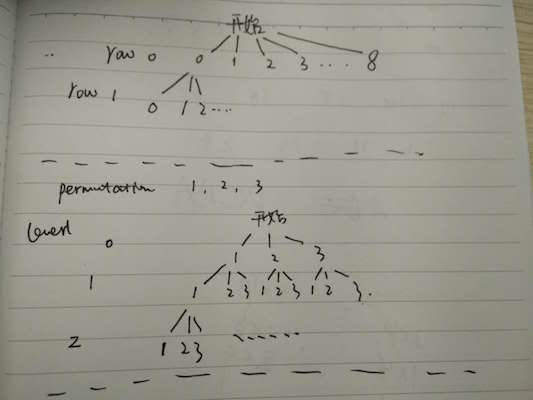 开始
row 0 0 1 2 3 .... 8
row 1 0 1 2 ....
permutation 1, 2, 3
开始
level 0 1 2 3
1 1 2 3 1 2 3 1 2 3.
2 1 2 3 ......